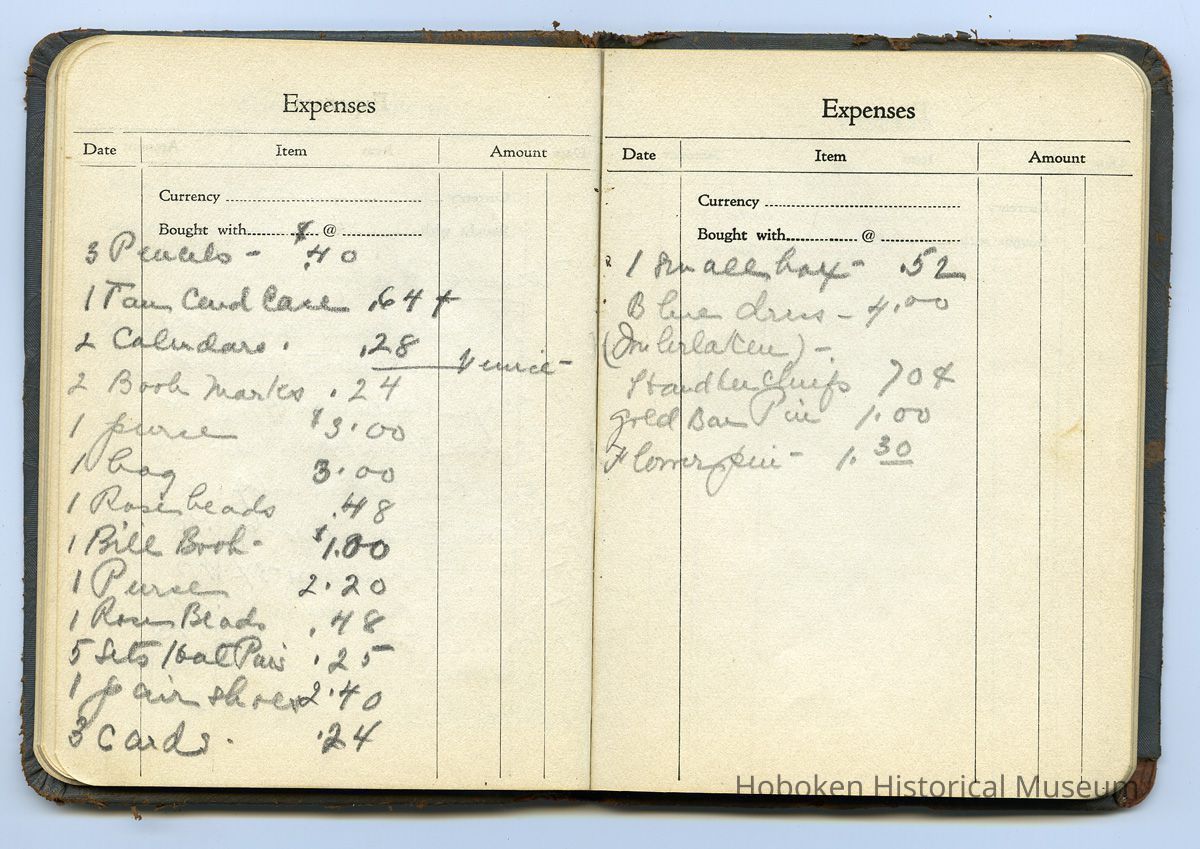 Expenses
Date Item Amount
Currency
Bought with $ @
3 Pencils - .40
1 Tan Card Case .64 ¢
2 Calendars . .28
Venice -
2 Book Marks .24
1 purse $3.00
1 bag 3.00
1 Rose beads .48
1 Bill Book - $1.00
1 Purse 2.20
1 Rose Beads .48
5 Sets Hat Pins .25
1 pair shoes 2.40
3 Cards . .24
Expenses
Date Item Amount
Currency
Bought with @
1 Small box - .52
Blue dress - 4.00
(Interlaken) -
Handkerchiefs 70 ¢
Gold Bar Pin 1.00
Flower pin - 1.30
Hoboken Historical Museum